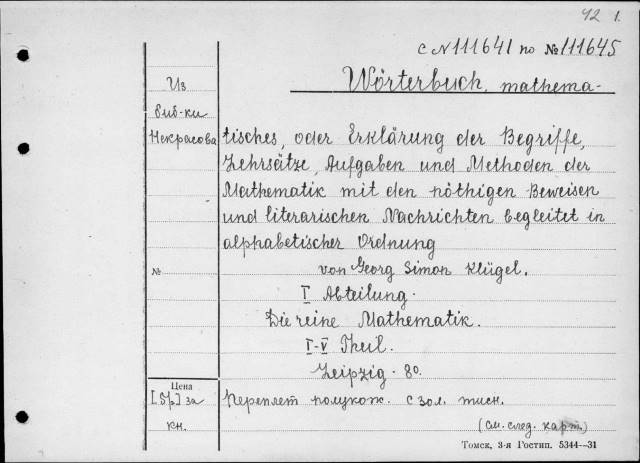 42 1.
с N 111641 по № 111645
Из Wörterbuch, mathema-
биб-ки
Некрасова tisches, oder Erklärung der Begriffe,
Lehrsätze, Aufgaben und Methoden der
Mathematik mit den nöthigen Beweisen
und literarischen Nachrichten begleitet in
alphabetischer Ordnung
№ von Georg Simon Klügel.
I Abteilung.
Die reine Mathematik.
I-V Theil.
Leipzig. 80.
Цена
[5р.] за Переплет полукож. с зол. тисн.
кн. (см. след. карт.)
Томск, 3-я Гостип. 5344—31